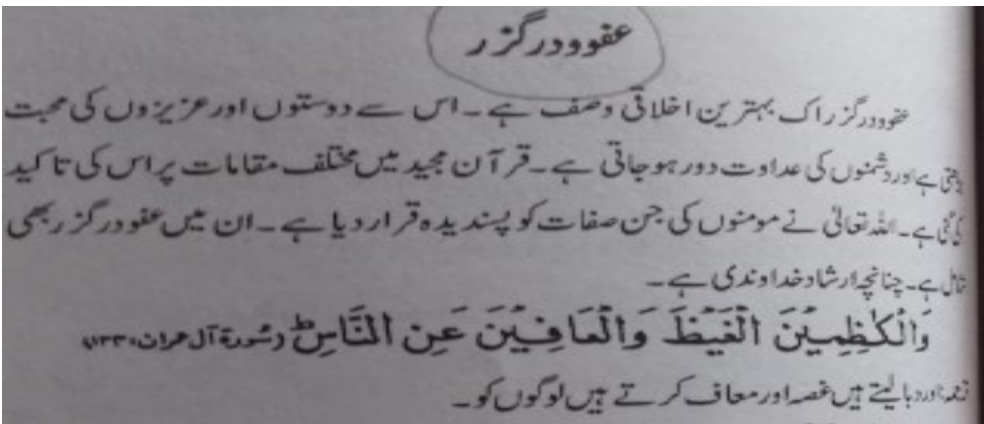 عفوودرگزر
عفوودرگزر اک بہترین اخلاقی وصف ہے۔ اس سے دوستوں اور عزیزوں کی محبت
بڑھتی ہے اور دشمنوں کی عداوت دور ہوجاتی ہے۔ قرآن مجید میں مختلف مقامات پر اس کی تاکید
کی گئی ہے۔ اللہ تعالیٰ نے مومنوں کی جن صفات کو پسندیدہ قرار دیا ہے۔ ان میں عفوودرگزر بھی
شامل ہے۔ چنانچہ ارشاد خداوندی ہے۔
وَالْكٰظِمِيْنَ الْغَيْظَ وَالْعَافِيْنَ عَنِ النَّاسِؕ (سُورۃ آل عمران: ۱۳۳)
ترجمہ: اور دبا لیتے ہیں غصہ اور معاف کرتے ہیں لوگوں کو۔